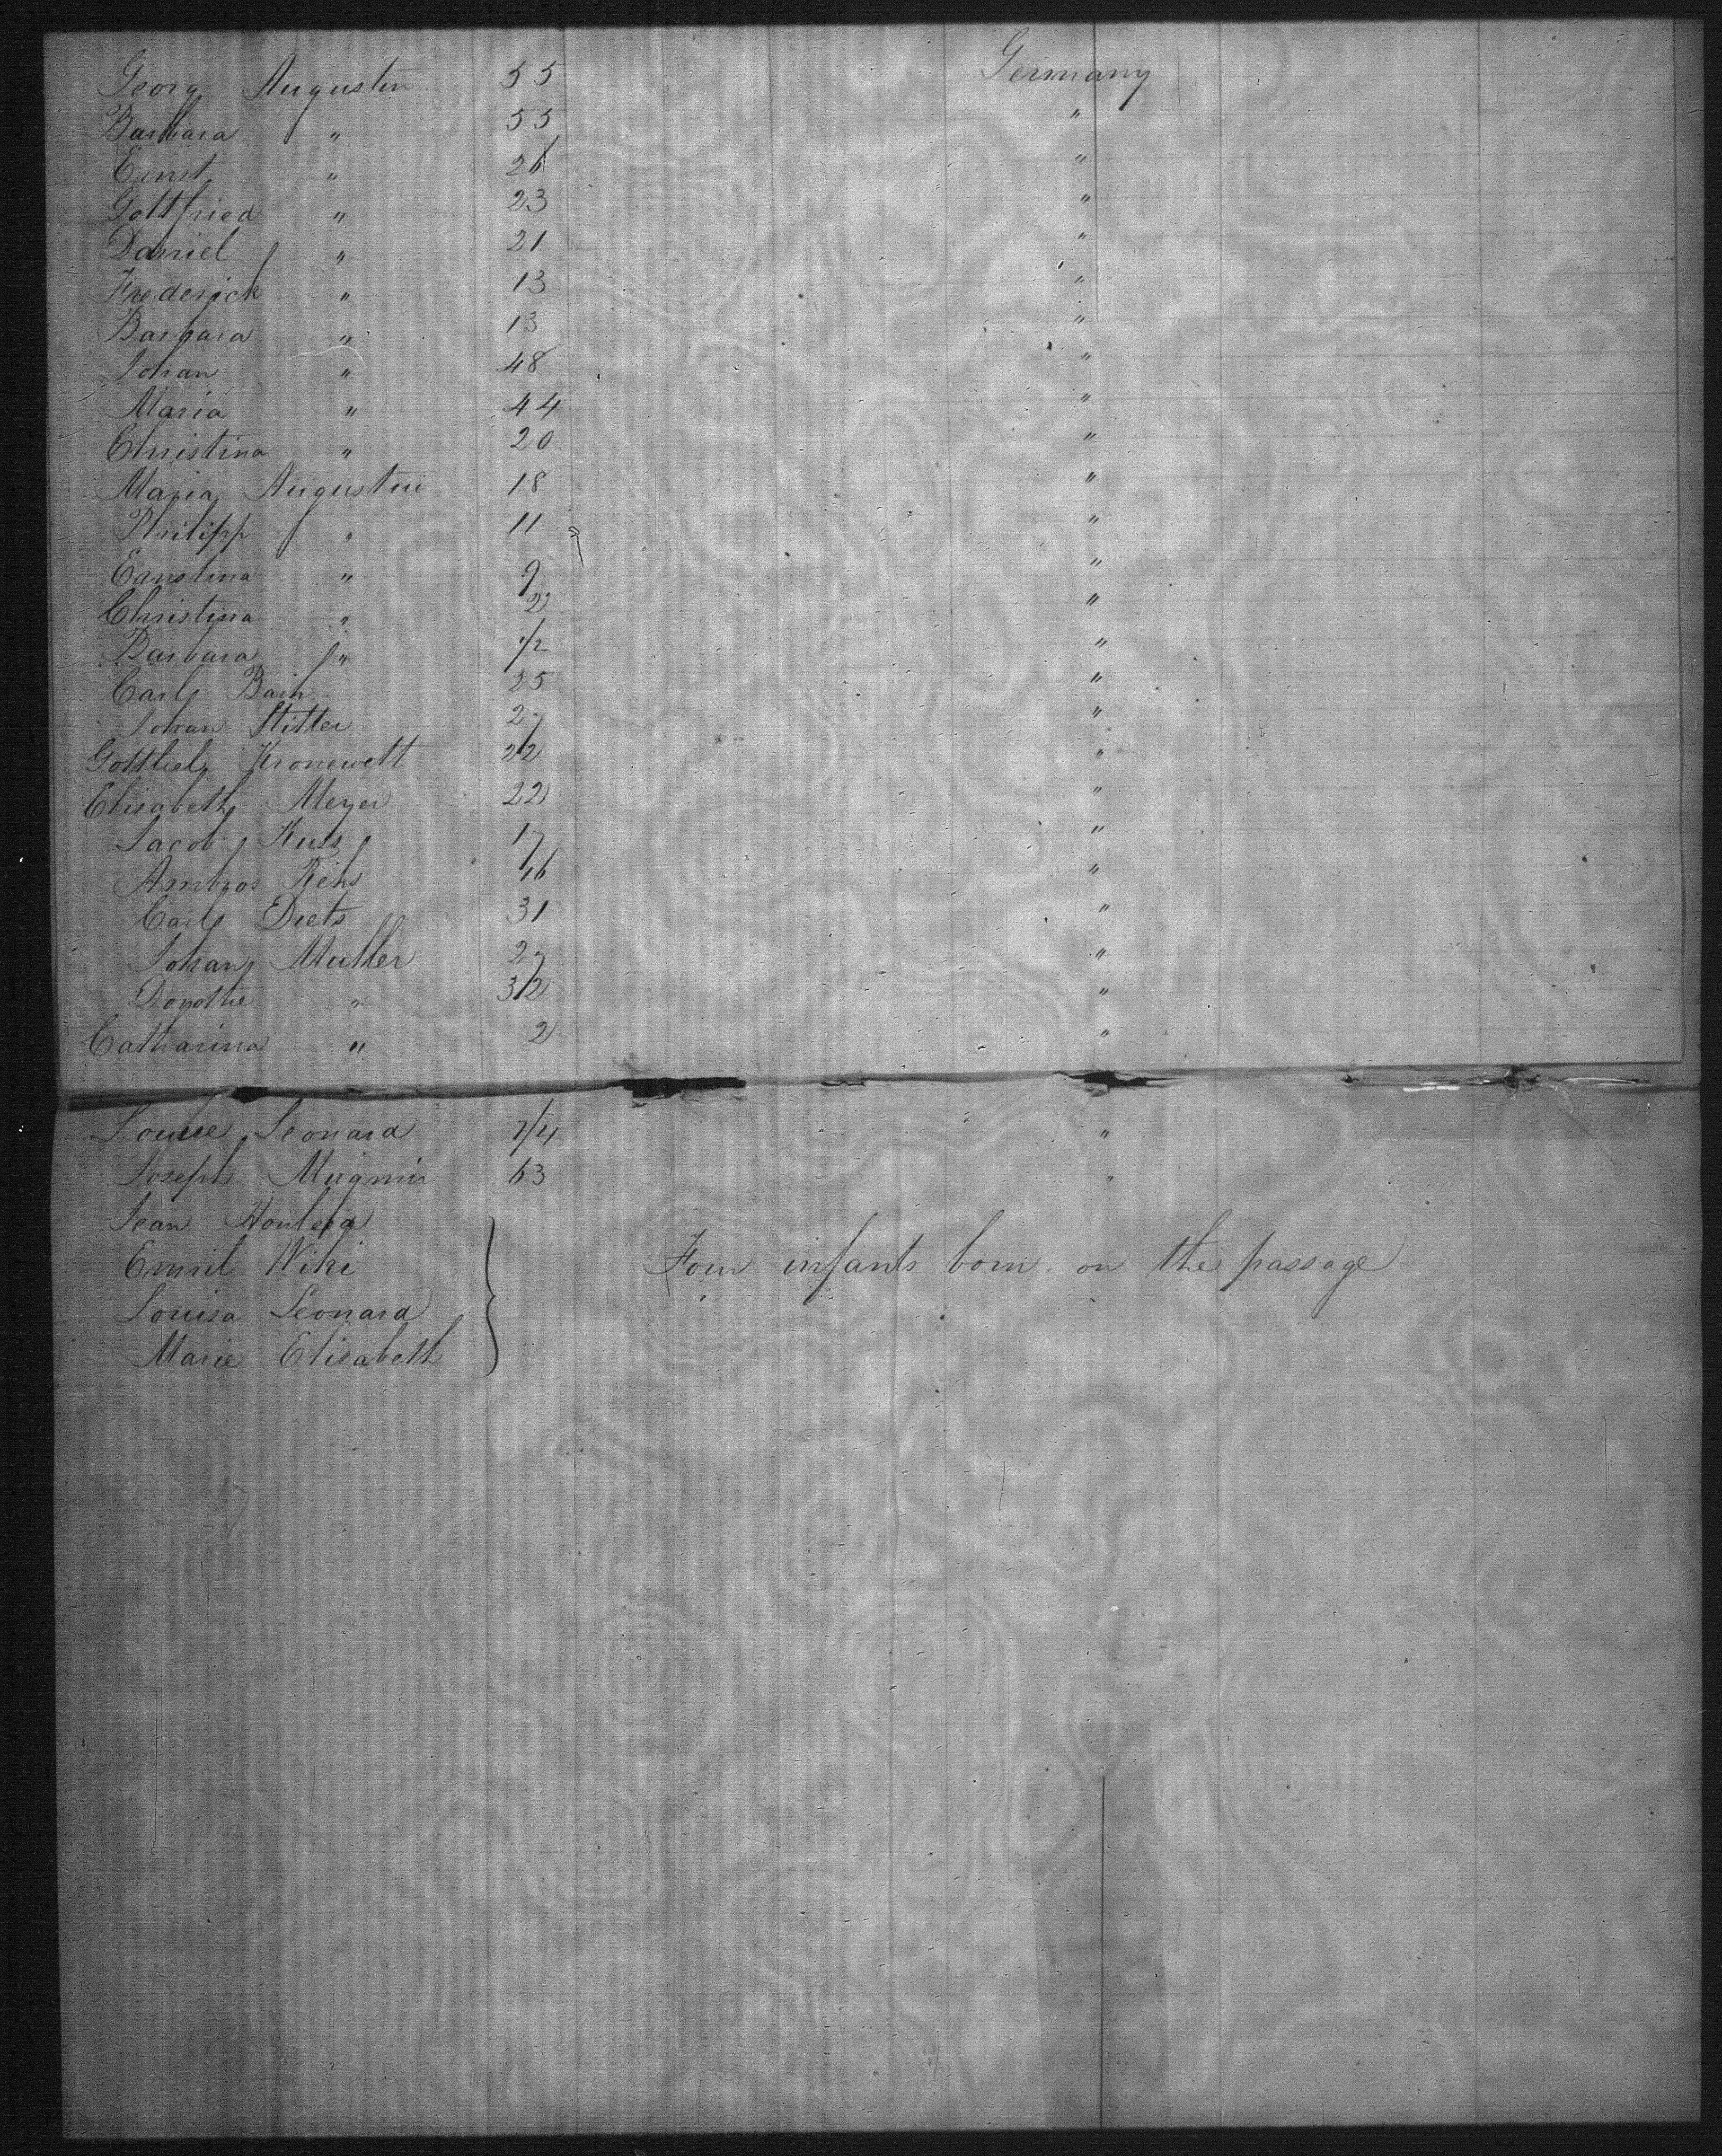 Georg Augustin 55 Germany
Barbara " 55 "
Ernst " 26 "
Gottfried " 23 "
Daniel " 21 "
Frederick " 13 "
Barbara " 13 "
Johan " 48 "
Maria " 44 "
Christina " 20 "
Maria Augustin 18 "
Philipp " 11 "
Ernstina " 9 "
Christina " 2 "
Barbara " 1/2 "
Carl 25 "
Johan Stitter 27 "
Gottlieb Kronewett 22 "
Elisabeth Meyer 22 "
Jacob 17 "
Ambros 46 "
Carl Diets 31 "
Johan Muller 27 "
Dorothe " 32 "
Catharina " 2 "
Louise Leonard "
Joseph 63 "
Jean
Emil Wiki Four infants born on the passage
Louisa Leonard
Marie Elisabeth